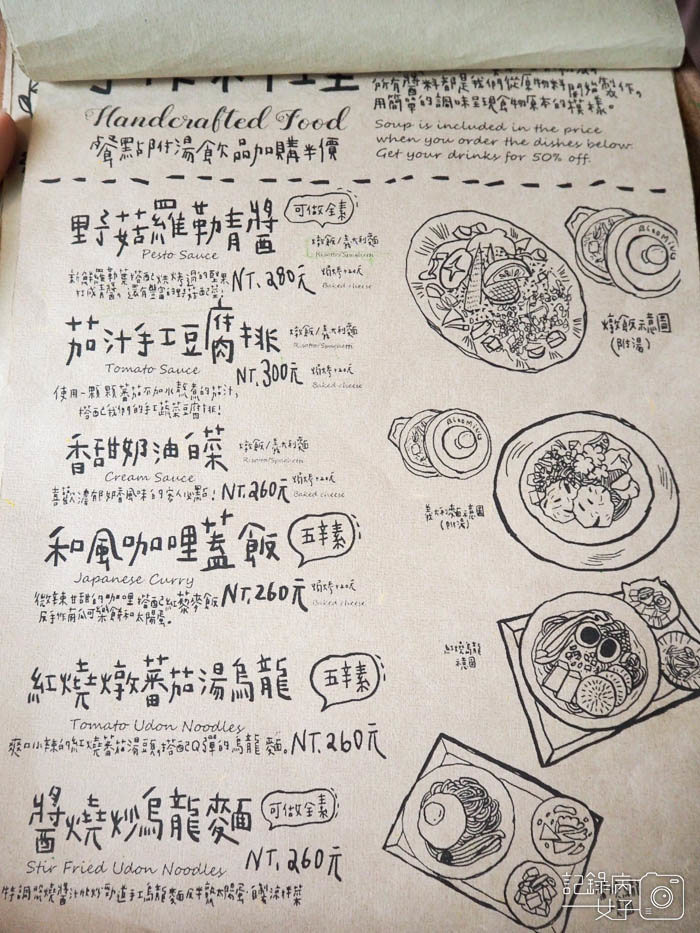 手作料理
所有醬料都是我們從原物料開始製作,
用簡單的調味呈現食物原本的模樣。
Handcrafted Food
餐點附湯飲品加購半價
Soup is included in the price
when you order the dishes below.
Get your drinks for 50% off.
野菇羅勒青醬
可做全素
Pesto Sauce
燉飯/義大利麵
Risotto/Spaghetti
NT.280元
焗烤+20元
Baked cheese
燉飯示意圖
(附湯)
茄汁手工豆腐排
燉飯/義大利麵
Risotto/Spaghetti
Tomato Sauce
NT.300元
焗烤+20元
Baked cheese
使用一顆顆蕃茄不加水熬煮的茄汁,
搭配我們的手工蔬菜豆腐排!
香甜奶油白菜
燉飯/義大利麵
Risotto/Spaghetti
Cream Sauce
喜歡濃郁奶香風味的客人必點!
NT.260元
焗烤+20元
Baked cheese
義大利麵示意圖
(附湯)
和風咖哩蓋飯
五辛素
Japanese Curry
微辣甘甜的咖哩搭配紅藜麥飯
及手作南瓜可樂餅和太陽蛋。
NT.260元
焗烤+20元
Baked cheese
紅燒烏龍
示意圖
紅燒燉蕃茄湯烏龍
五辛素
Tomato Udon Noodles
爽口小辣的紅燒蕃茄湯頭,搭配Q彈的烏龍麵。
NT.260元
醬燒炒烏龍麵
可做全素
Stir Fried Udon Noodles
NT.260元
特調照燒醬汁炒勁道手工烏龍麵及半熟太陽蛋,自製涼拌菜
記錄病
女子